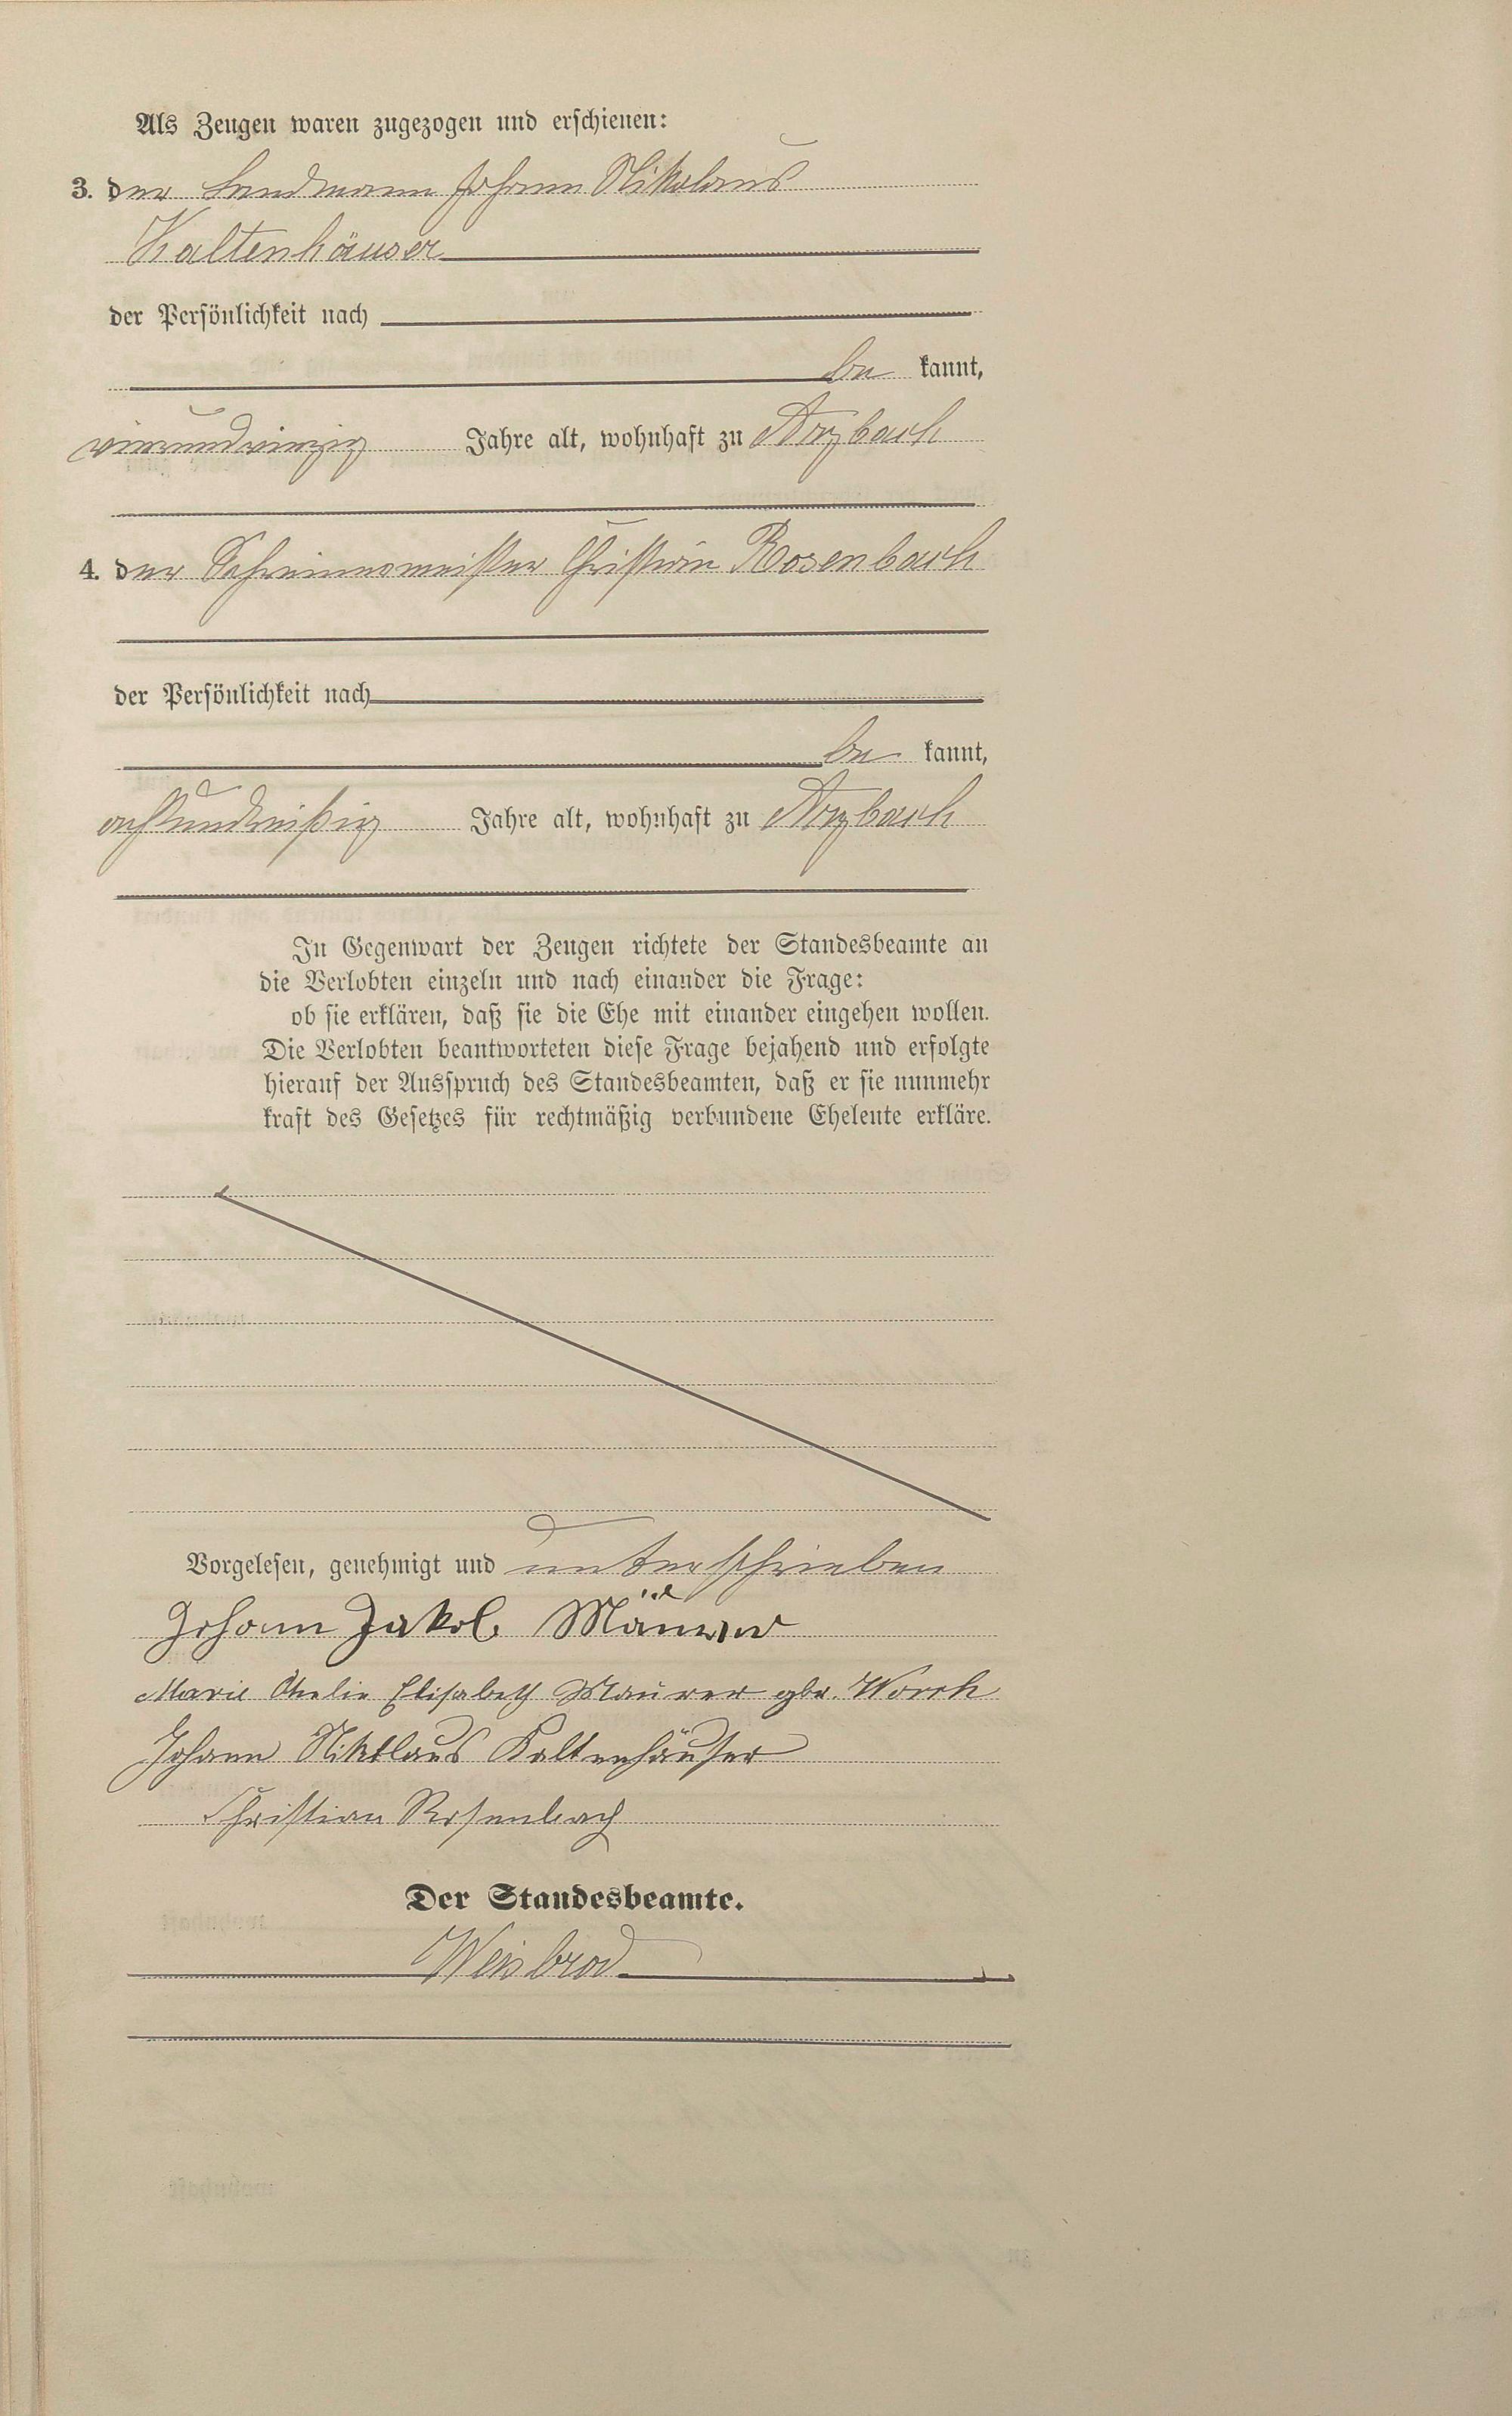 Als Zeugen waren zugezogen und erschienen:
3. der Landmann Johann Nikolaus
Kaltenhäuser
der Persönlichkeit nach
be kannt,
vierundvierzig Jahre alt, wohnhaft zu Arzbach
4. der Schreinermeister Christian Rosenbach
der Persönlichkeit nach
be kannt,
achtunddreißig Jahre alt, wohnhaft zu Arzbach
In Gegenwart der Zeugen richtete der Standesbeamte an
die Verlobten einzeln und nach einander die Frage:
ob sie erklären, daß sie die Ehe mit einander eingehen wollen.
Die Verlobten beantworteten diese Frage bejahend und erfolgte
hierauf der Ausspruch des Standesbeamten, daß er sie nunmehr
kraft des Gesetzes für rechtmäßig verbundene Eheleute erkläre.
Vorgelesen, genehmigt und unterschrieben
Johann Jakob Maurer
Marie Elisabeth Maurer gbr. Worch
Johann Nikolaus Kaltenhäuser
Christian Rosenbach
Der Standesbeamte.
Weisbrod